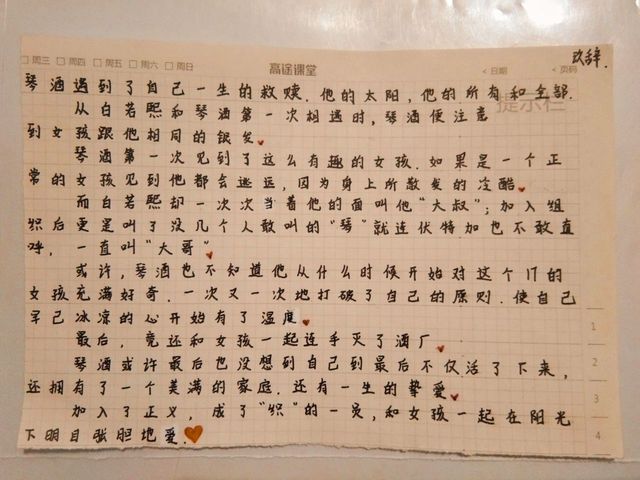 玖辞.
□周三 □周四 □周五 □周六 □周日 高途课堂 <日期 <页码
提示栏
琴酒遇到了自己一生的救赎.他的太阳,他的所有和全部.
从白若熙和琴酒第一次相遇时,琴酒便注意
到女孩跟他相同的银发.
琴酒第一次见到了这么有趣的女孩.如果是一个正
常的女孩见到他都会逃远,因为身上所散发的冷酷.
而白若熙却一次次当着他的面叫他“大叔”;加入组
织后更是叫了没几个人敢叫的“琴”就连伏特加也不敢直
呼,一直叫“大哥”
或许,琴酒也不知道他从什么时候开始对这个17的
女孩充满好奇.一次又一次地打破了自己的原则.使自己
早已冰凉的心开始有了温度.
最后,竟还和女孩一起连手灭了酒厂.
琴酒或许最后也没想到自己到最后不仅活了下来,
还拥有了一个美满的家庭.还有一生的挚爱.
加入了正义,成了“织”的一员,和女孩一起在阳光
下明目张胆地爱.
1
2
3
4